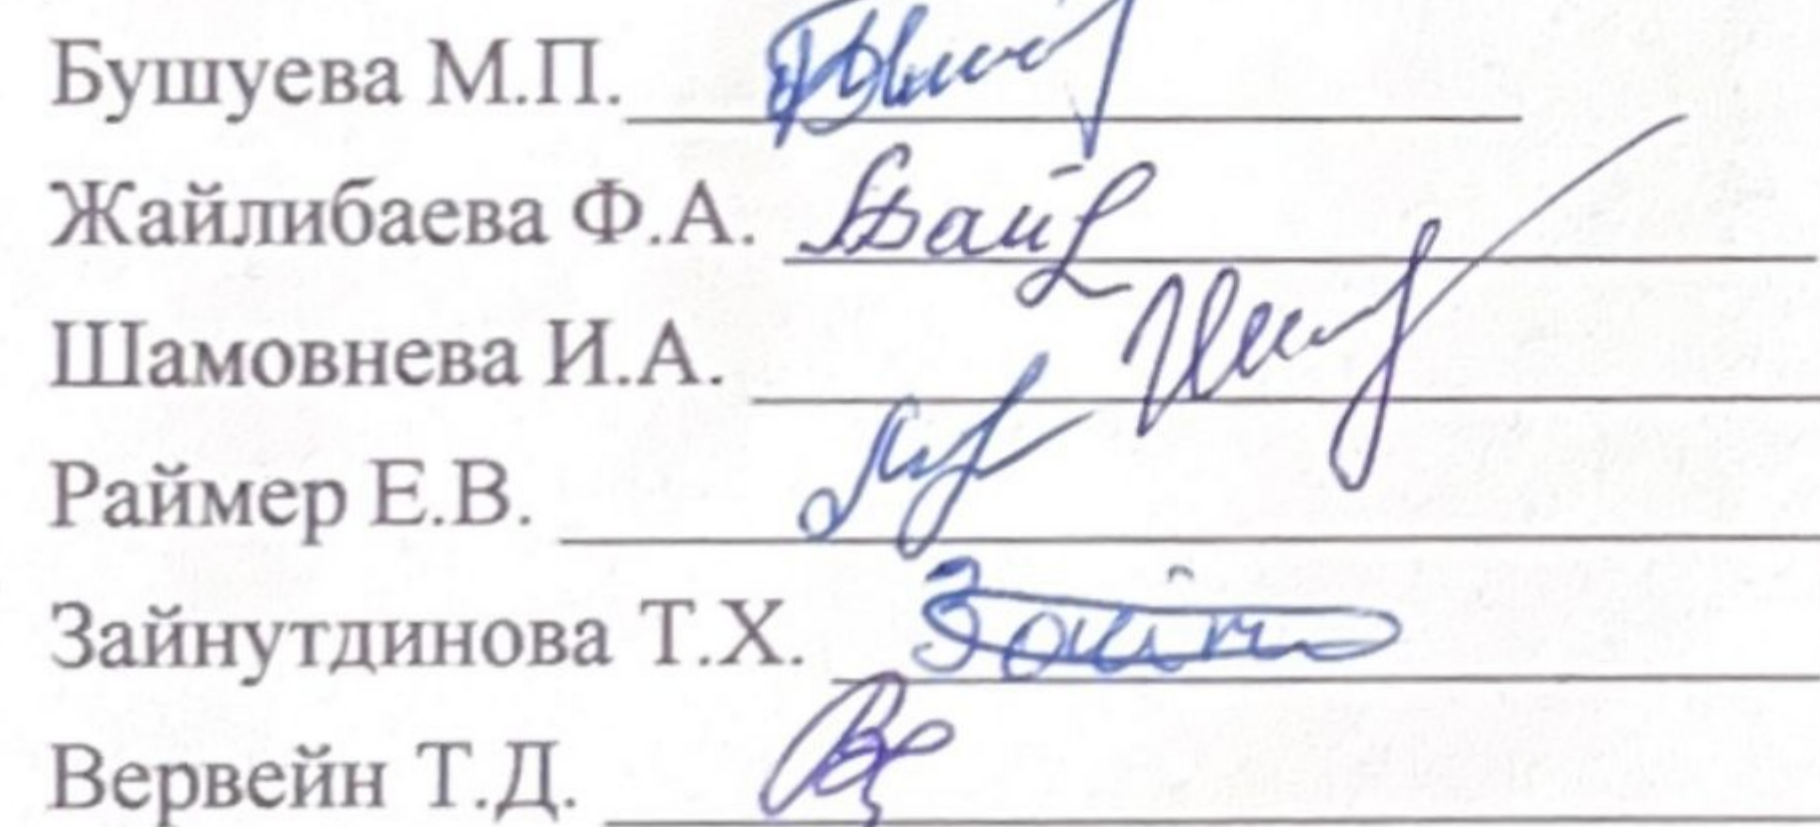 Бушуева М.П.
Жайлибаева Ф.А.
Шамовнева И.А.
Раймер Е.В.
Зайнутдинова Т.Х.
Вервейн Т.Д.